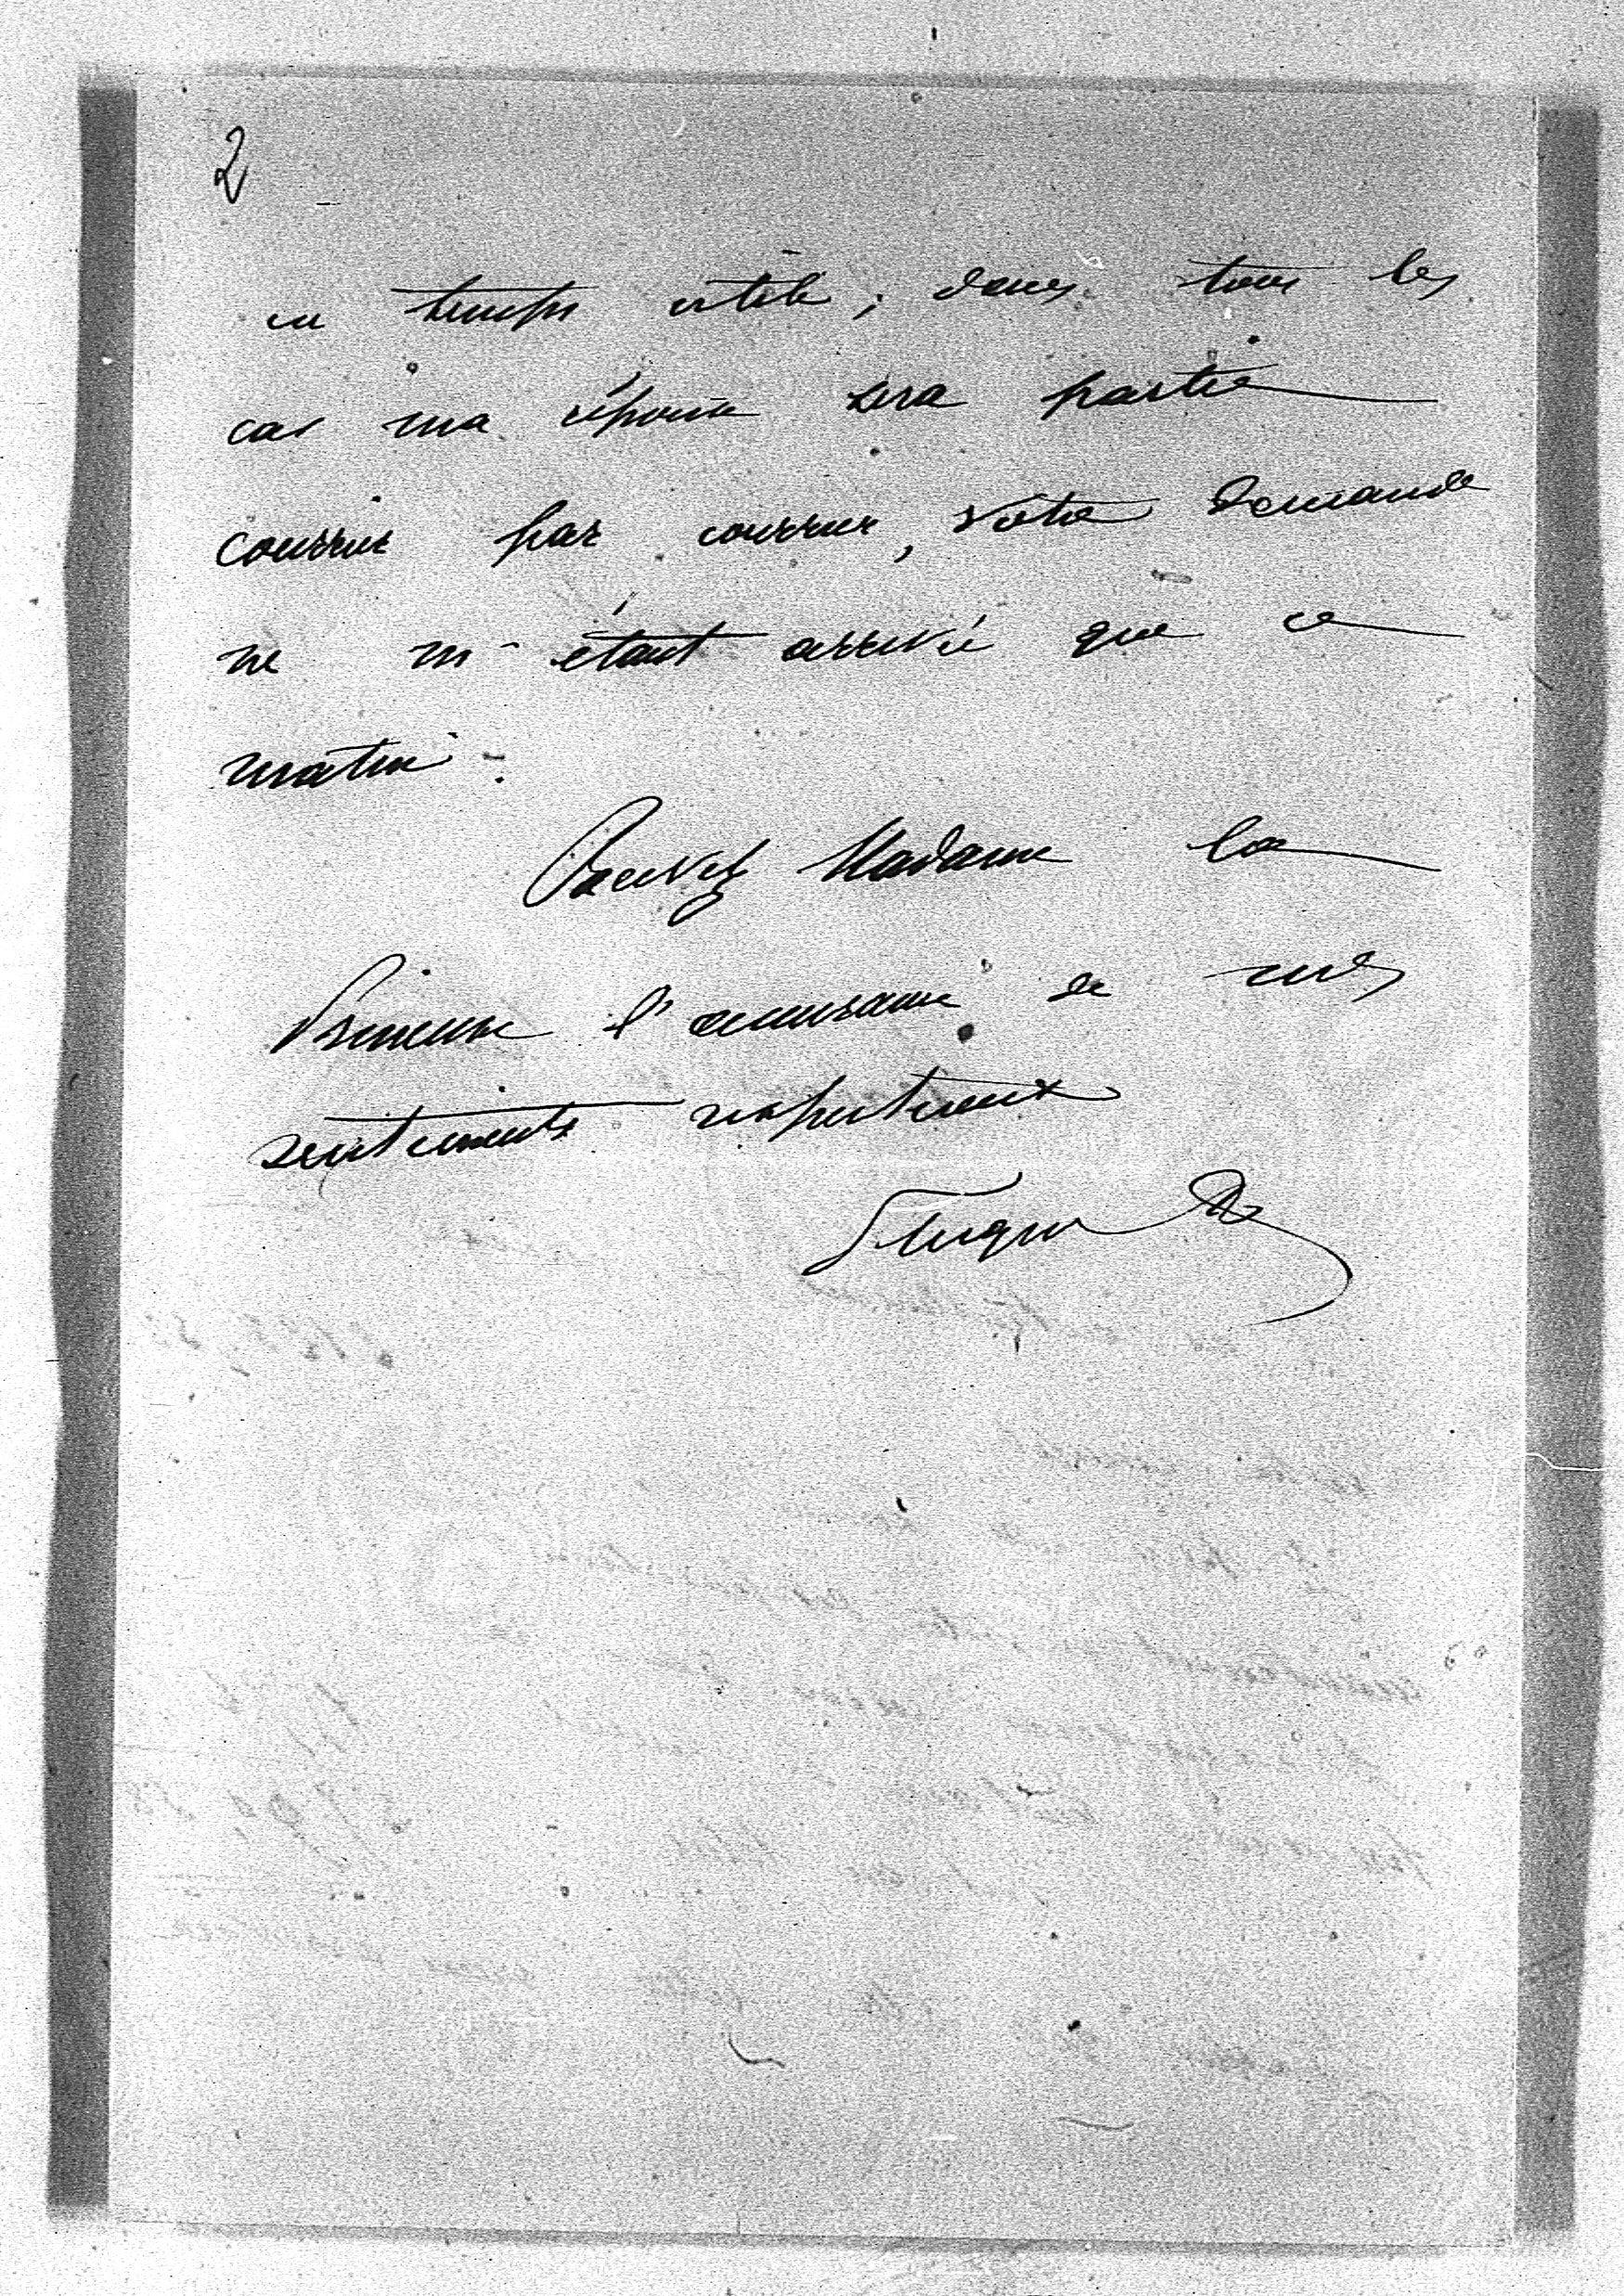 2
en temps utile ; dans tous les
cas ma réponse sera partie
courrier par courrier, votre demande
ne m'étant arrivée que ce
matin.
Recevez Madame la
Princesse l'assurance de mes
sentiments respectueux